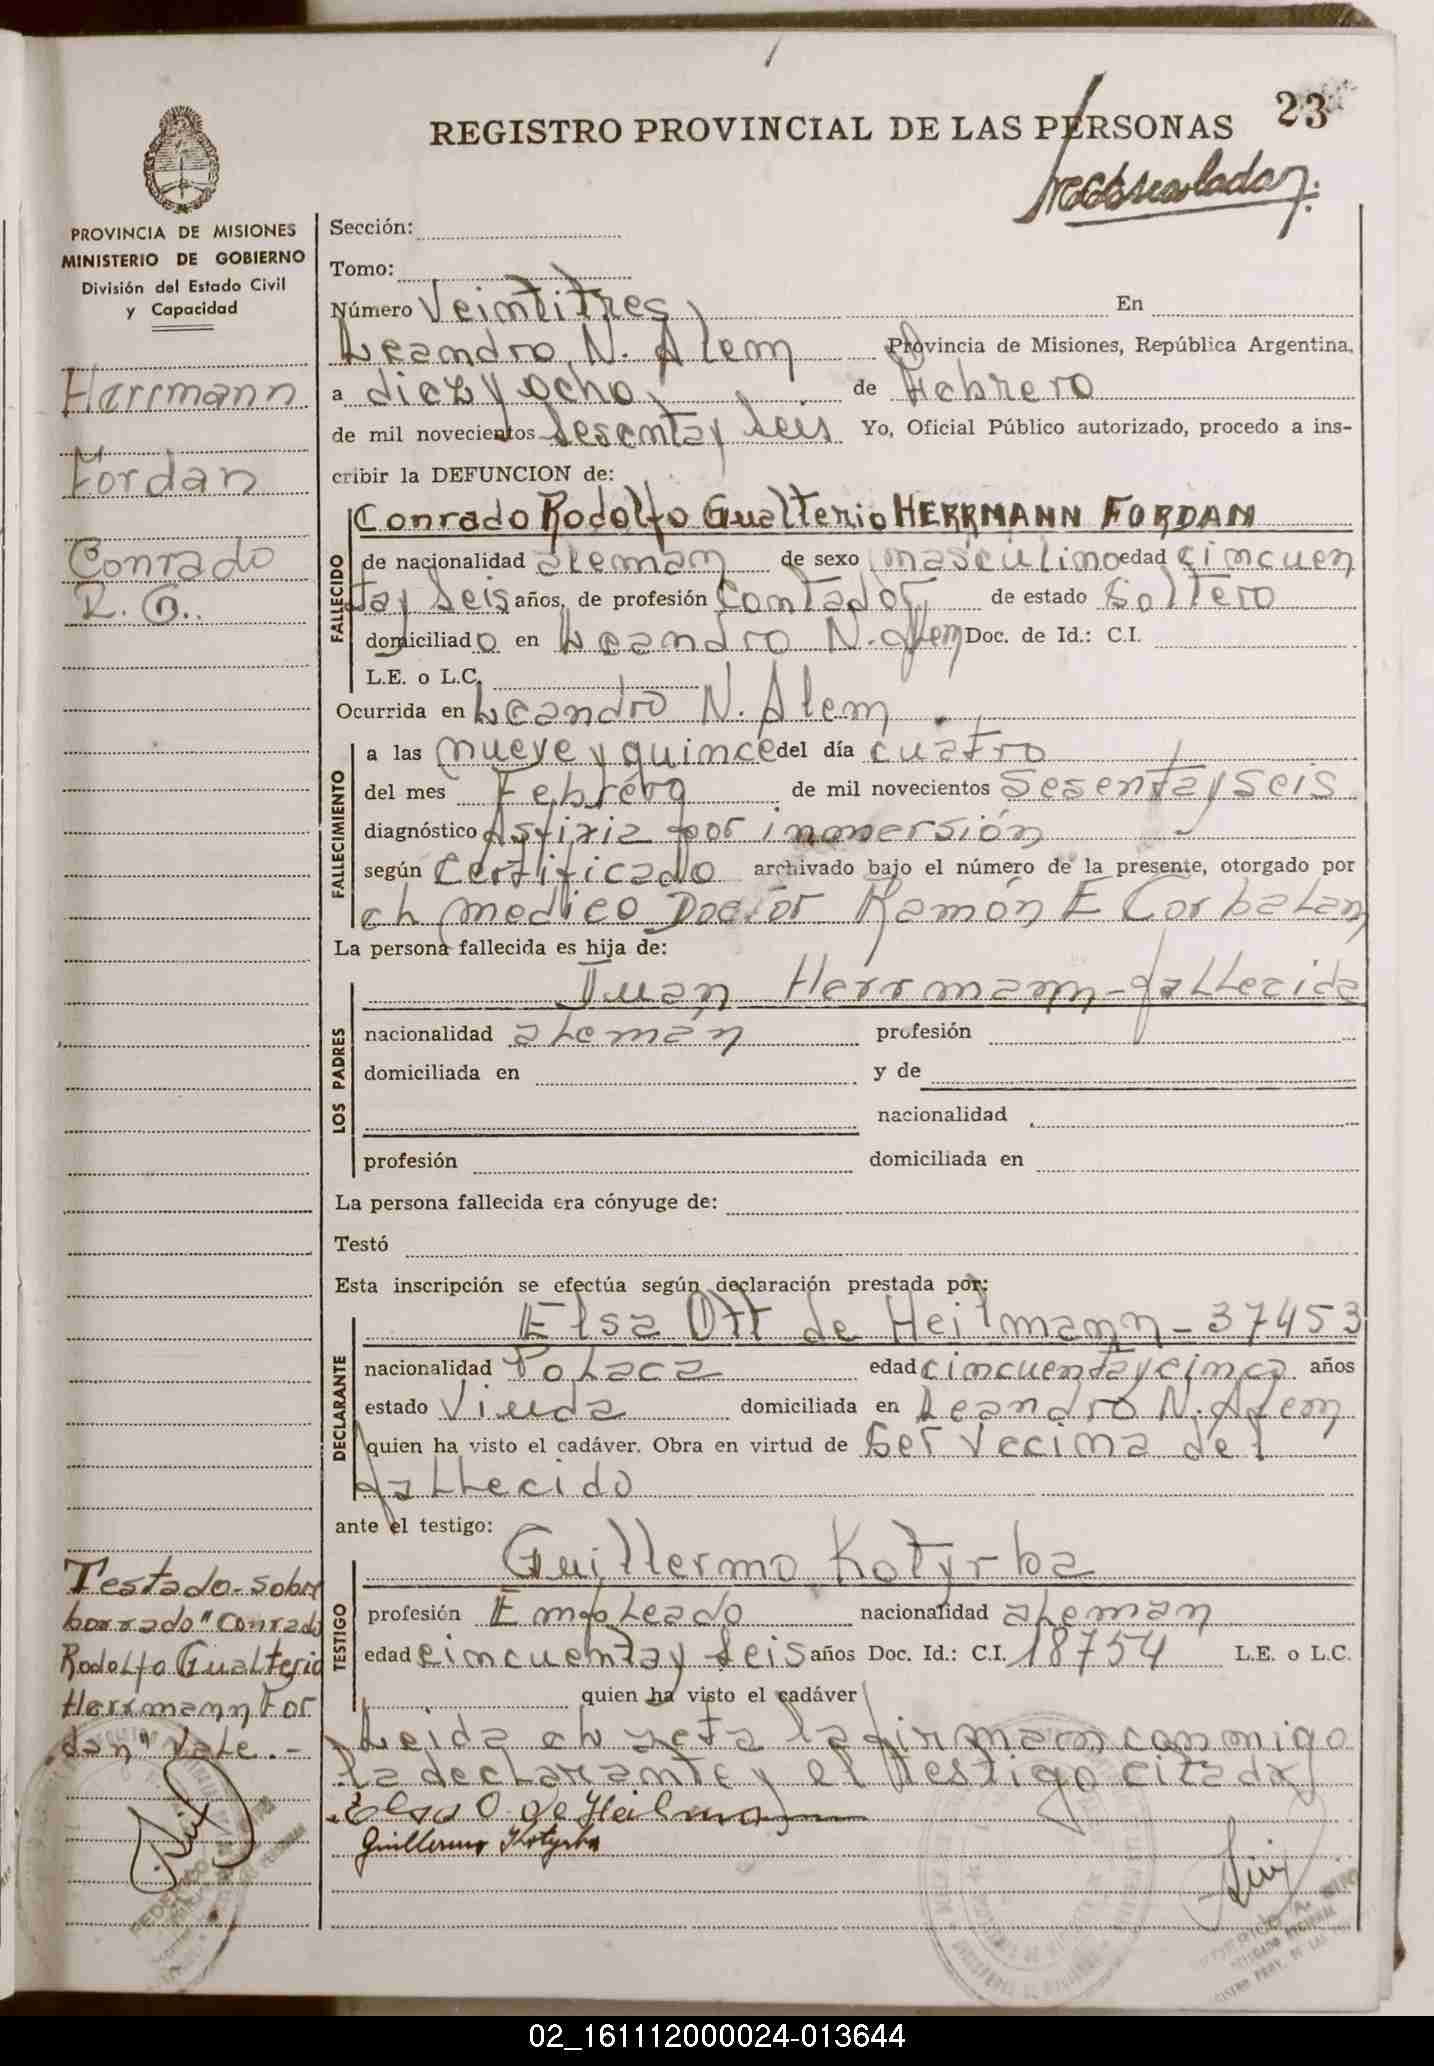 23
REGISTRO PROVINCIAL DE LAS PERSONAS
PROVINCIA DE MISIONES
MINISTERIO DE GOBIERNO
División del Estado Civil
y Capacidad
Herrmann
Fordan
Conrado
R. G..
Sección:
Tomo:
Número Veintitres En
Leandro N. Alem Provincia de Misiones, República Argentina,
a diez y ocho de Febrero
de mil novecientos sesenta y seis Yo, Oficial Público autorizado, procedo a ins-
cribir la DEFUNCION de:
FALLECIDO
Conrado Rodolfo Gualterio HERRMANN FORDAN
de nacionalidad aleman de sexo masculino edad cincuen
ta y seis años, de profesión Contador de estado Soltero
domiciliado en Leandro N. Alem Doc. de Id.: C.I.
L.E. o L.C.
Ocurrida en Leandro N. Alem
FALLECIMIENTO
a las nueve y quince del día cuatro
del mes Febrero de mil novecientos sesenta y seis
diagnóstico Asfixia por inmersión
según Certificado archivado bajo el número de la presente, otorgado por
el medico Doctor Ramón E Corbalan
La persona fallecida es hija de:
LOS PADRES
Juan Herrmann - fallecida
nacionalidad alemán profesión
domiciliada en y de
nacionalidad
profesión domiciliada en
La persona fallecida era cónyuge de:
Testó
Esta inscripción se efectúa según declaración prestada por:
DECLARANTE
Elsa Ott de Heilmann - 37453
nacionalidad Polaca edad cincuenta y cinco años
estado Viuda domiciliada en Leandro N. Alem
quien ha visto el cadáver. Obra en virtud de ser vecina del
fallecido
ante el testigo:
TESTIGO
Guillermo Kotyrba
profesión Empleado nacionalidad aleman
edad cincuenta y seis años Doc. Id.: C.I. 18754 L.E. o L.C.
quien ha visto el cadáver
Leida el acta la firman conmigo
la declarante y el testigo citada
Elsa O. de Heilmann
Guillermo Kotyrba
Testado-sobre
borrado "Conrado
Rodolfo Gualterio
Herrmann For
dan" Vale.-
02_161112000024-013644